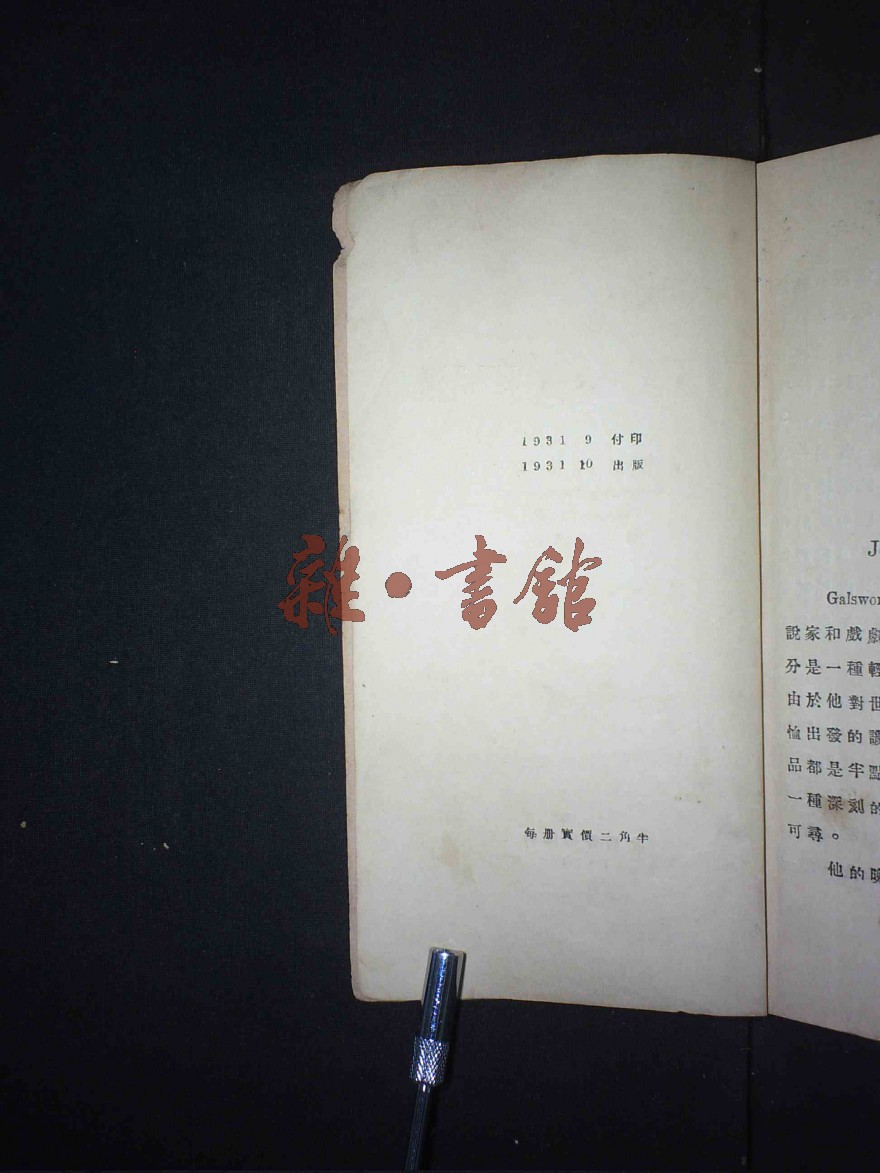 1931 9 付印
1931 10 出版
雜·書館
每册實價二角半
J
Galswor
說家和戲劇
分是一種輕
由於他對世
恤出發的諷
品都是半點
一種深刻的
可尋。
他的晚